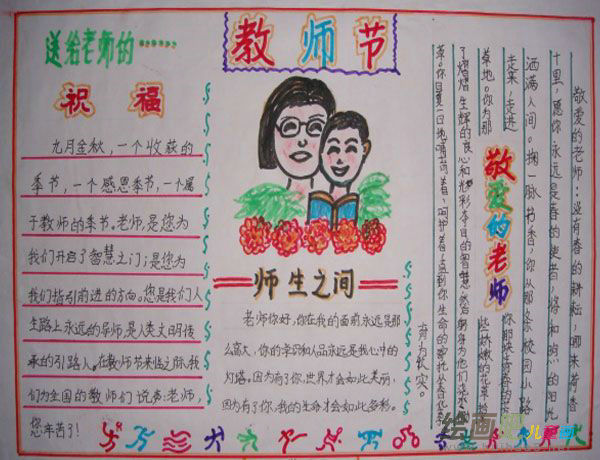 教师节
送给老师的……
祝福
九月金秋，一个收获的
季节，一个感恩季节，一个属
于教师的季节。老师，是您为
我们开启了智慧之门；是您为
我们指引前进的方向。您是我们人
生路上永远的导师，是人类文明传
承的引路人。在教师节来临之际，我
们为全国的教师们说声：老师，
您辛苦了！
师生之间
老师你好，你在我的面前永远是那
么高大，你的学识和人品永远是我心中的
灯塔。因为有了你，世界才会如此美丽，
因为有了你，我的生命才会如此多彩。
敬爱的老师
敬爱的老师：没有春的耕耘，哪来秋香
十里，愿你永远是春的使者，将和煦的阳光
洒满人间。掬一脉书香，你从那条校园小路
走来，走进
草地。你为那
育为长实。
绘画
儿童画